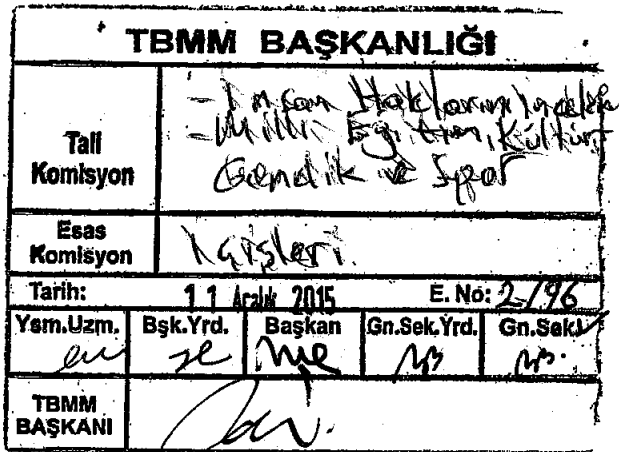 TBMM BAŞKANLIĞI
Tali
Komisyon
- İnsan Haklarını İnceleme
- Milli Eğitim, Kültür,
Gençlik ve Spor
Esas
Komisyon
İçişleri.
Tarih: 11 Aralık 2015 E. No: 2/96
Ysm.Uzm. Bşk.Yrd. Başkan Gn.Sek.Yrd. Gn.Sek.
TBMM
BAŞKANI